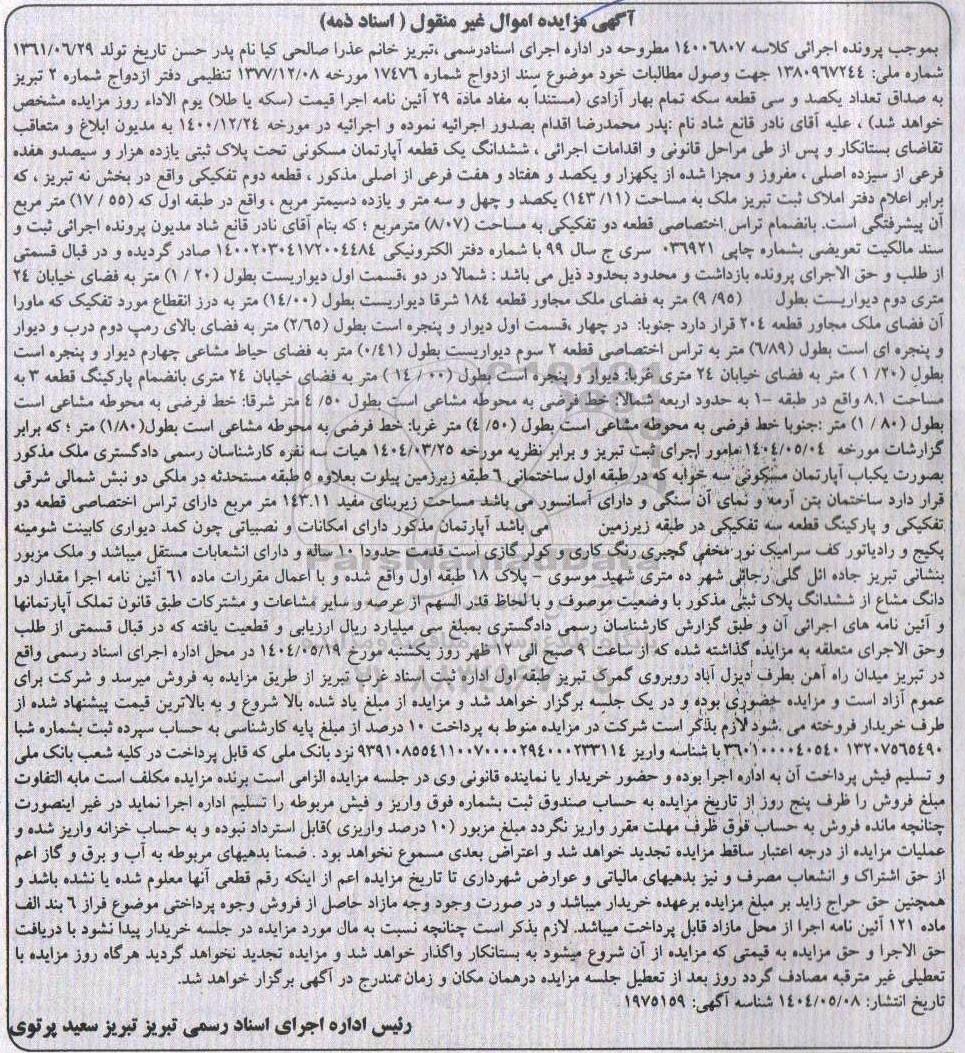 آگهی مزایده اموال غیر منقول ( اسناد ذمه)
بموجب پرونده اجرائی کلاسه ۱۴۰۰۶۸۰۷ مطروحه در اداره اجرای اسنادرسمی ،تبریز خانم عذرا صالحی کیا نام پدر حسن تاریخ تولد ۱۳۶۱/۰۶/۲۹
شماره ملی: ۱۳۸۰۹۶۷۲۴۴ جهت وصول مطالبات خود موضوع سند ازدواج شماره ۱۷۴۷۶ مورخه ۱۳۷۷/۱۲/۰۸ تنظیمی دفتر ازدواج شماره ۲ تبریز
به صداق تعداد یکصد و سی قطعه سکه تمام بهار آزادی (مستنداً به مفاد مادة ۲۹ آئین نامه اجرا قیمت (سکه یا طلا) یوم الاداء روز مزایده مشخص
خواهد شد) ، علیه آقای نادر قانع شاد نام :پدر محمدرضا اقدام بصدور اجرائیه نموده و اجرائیه در مورخه ۱۴۰۰/۱۲/۲۴ به مدیون ابلاغ و متعاقب
تقاضای بستانکار و پس از طی مراحل قانونی و اقدامات اجرائی ، ششدانگ یک قطعه آپارتمان مسکونی تحت پلاک ثبتی یازده هزار و سیصدو هفده
فرعی از سیزده اصلی ، مفروز و مجزا شده از یکهزار و یکصد و هفتاد و هفت فرعی از اصلی مذکور ، قطعه دوم تفکیکی واقع در بخش نه تبریز ، که
برابر اعلام دفتر املاک ثبت تبریز ملک به مساحت (۱۴۳/۱۱) یکصد و چهل و سه متر و یازده دسیمتر مربع ، واقع در طبقه اول که (۵۵ / ۱۷) متر مربع
آن پیشرفتگی است. بانضمام تراس اختصاصی قطعه دو تفکیکی به مساحت (۸/۰۷) مترمربع ؛ که بنام آقای نادر قانع شاد مدیون پرونده اجرائی ثبت و
سند مالکیت تعویضی بشماره چاپی ۰۳۶۹۲۱ سری ج سال ۹۹ با شماره دفتر الکترونیکی ۱۴۰۰۲۰۳۰۴۱۷۲۰۰۴۴۸۴ صادر گردیده و در قبال قسمتی
از طلب و حق الاجرای پرونده بازداشت و محدود بحدود ذیل می باشد : شمالا در دو ،قسمت اول دیواریست بطول (۲۰ / ۱) متر به فضای خیابان ۲۴
متری دوم دیواریست بطول (۹۵/ ۹) متر به فضای ملک مجاور قطعه ۱۸۴ شرقا دیواریست بطول (۱۴/۰۰) متر به درز انقطاع مورد تفکیک که ماورا
آن فضای ملک مجاور قطعه ۲۰۴ قرار دارد جنوبا: در چهار ،قسمت اول دیوار و پنجره است بطول (۲/۶۵) متر به فضای بالای رمپ دوم درب و دیوار
و پنجره ای است بطول (۶/۸۹) متر به تراس اختصاصی قطعه ۲ سوم دیواریست بطول (۰/۴۱) متر به فضای حیاط مشاعی چهارم دیوار و پنجره است
بطول (۲۰/ ۱ ) متر به فضای خیابان ۲۴ متری غربا: دیوار و پنجره است بطول (۰۰ / ۱۴ ) متر به فضای خیابان ۲۴ متری بانضمام پارکینگ قطعه ۳ به
مساحت ۸.۱ واقع در طبقه -۱ به حدود اربعه شمالا: خط فرضی به محوطه مشاعی است بطول ۴/۵۰ متر شرقا: خط فرضی به محوطه مشاعی است
بطول (۸۰ / ۱) متر :جنوبا خط فرضی به محوطه مشاعی است بطول (۵۰/ ۴) متر غربا: خط فرضی به محوطه مشاعی است بطول(۱/۸۰) متر ؛ که برابر
گزارشات مورخه ۱۴۰۴/۰۵/۰۴ مامور اجرای ثبت تبریز و برابر نظریه مورخه ۱۴۰۴/۰۳/۲۵ هیات سه نفره کارشناسان رسمی دادگستری ملک مذکور
بصورت یکباب آپارتمان مسکونی سه خوابه که در طبقه اول ساختمانی ۶ طبقه زیرزمین پیلوت بعلاوه ۵ طبقه مستحدثه در ملکی دو نبش شمالی شرقی
قرار دارد ساختمان بتن آرمه و نمای آن سنگی و دارای آسانسور می باشد مساحت زیربنای مفید ۱۴۳.۱۱ متر مربع دارای تراس اختصاصی قطعه دو
تفکیکی و پارکینگ قطعه سه تفکیکی در طبقه زیرزمین می باشد آپارتمان مذکور دارای امکانات و نصبیاتی چون کمد دیواری کابینت شومینه
پکیج و رادیاتور کف سرامیک نور مخفی گچبری رنگ کاری و کولر گازی است قدمت حدودا ۱۰ ساله و دارای انشعابات مستقل میباشد و ملک مزبور
بنشانی تبریز جاده ائل گلی رجائی شهر ده متری شهید موسوی – پلاک ۱۸ طبقه اول واقع شده و با اعمال مقررات ماده ۶۱ آئین نامه اجرا مقدار دو
دانگ مشاع از ششدانگ پلاک ثبتی مذکور با وضعیت موصوف و با لحاظ قدر السهم از عرصه و سایر مشاعات و مشترکات طبق قانون تملک آپارتمانها
و آئین نامه های اجرائی آن و طبق گزارش کارشناسان رسمی دادگستری بمبلغ سی میلیارد ریال ارزیابی و قطعیت یافته که در قبال قسمتی از طلب
وحق الاجرای متعلقه به مزایده گذاشته شده که از ساعت ۹ صبح الی ۱۲ ظهر روز یکشنبه مورخ ۱۴۰۴/۰۵/۱۹ در محل اداره اجرای اسناد رسمی واقع
در تبریز میدان راه آهن بطرف دیزل آباد روبروی گمرک تبریز طبقه اول اداره ثبت اسناد غرب تبریز از طریق مزایده به فروش میرسد و شرکت برای
عموم آزاد است و مزایده حضوری بوده و در یک جلسه برگزار خواهد شد و مزایده از مبلغ یاد شده بالا شروع و به بالاترین قیمت پیشنهاد شده از
طرف خریدار فروخته می .شود لازم بذکر است شرکت در مزایده منوط به پرداخت ۱۰ درصد از مبلغ پایه کارشناسی به حساب سپرده ثبت بشماره شبا
۳۶۰۱۰۰۰۰۴۰۵۴۰ ۱۳۲۰۷۵۶۵۴۹۰ با شناسه واریز ۹۳۹۱۰۸۵۵۴۱۱۰۰۷۰۰۰۰۲۹۴۰۰۰۲۳۳۱۱۴ نزد بانک ملی که قابل پرداخت در کلیه شعب بانک ملی
و تسلیم فیش پرداخت آن به اداره اجرا بوده و حضور خریدار یا نماینده قانونی وی در جلسه مزایده الزامی است برنده مزایده مکلف است مابه التفاوت
مبلغ فروش را ظرف پنج روز از تاریخ مزایده به حساب صندوق ثبت بشماره فوق واریز و فیش مربوطه را تسلیم اداره اجرا نماید در غیر اینصورت
چنانچه مانده فروش به حساب فوق ظرف مهلت مقرر واریز نگردد مبلغ مزبور (۱۰ درصد واریزی )قابل استرداد نبوده و به حساب خزانه واریز شده و
عملیات مزایده از درجه اعتبار ساقط مزایده تجدید خواهد شد و اعتراض بعدی مسموع نخواهد بود . ضمنا بدهیهای مربوطه به آب و برق و گاز اعم
از حق اشتراک و انشعاب مصرف و نیز بدهیهای مالیاتی و عوارض شهرداری تا تاریخ مزایده اعم از اینکه رقم قطعی آنها معلوم شده یا نشده باشد و
همچنین حق حراج زاید بر مبلغ مزایده برعهده خریدار میباشد و در صورت وجود وجه مازاد حاصل از فروش وجوه پرداختی موضوع فراز ۶ بند الف
ماده ۱۲۱ آئین نامه اجرا از محل مازاد قابل پرداخت میباشد. لازم بذکر است چنانچه نسبت به مال مورد مزایده در جلسه خریدار پیدا نشود با دریافت
حق الاجرا و حق مزایده به قیمتی که مزایده از آن شروع میشود به بستانکار واگذار خواهد شد و مزایده تجدید نخواهد گردید هرگاه روز مزایده با
تعطیلی غیر مترقبه مصادف گردد روز بعد از تعطیل جلسه مزایده درهمان مکان و زمان مندرج در آگهی برگزار خواهد شد.
تاریخ انتشار: ۱۴۰۴/۰۵/۰۸ شناسه آگهی: ۱۹۷۵۱۵۹
رئیس اداره اجرای اسناد رسمی تبریز تبریز سعید پرتوی
ParsNamadData